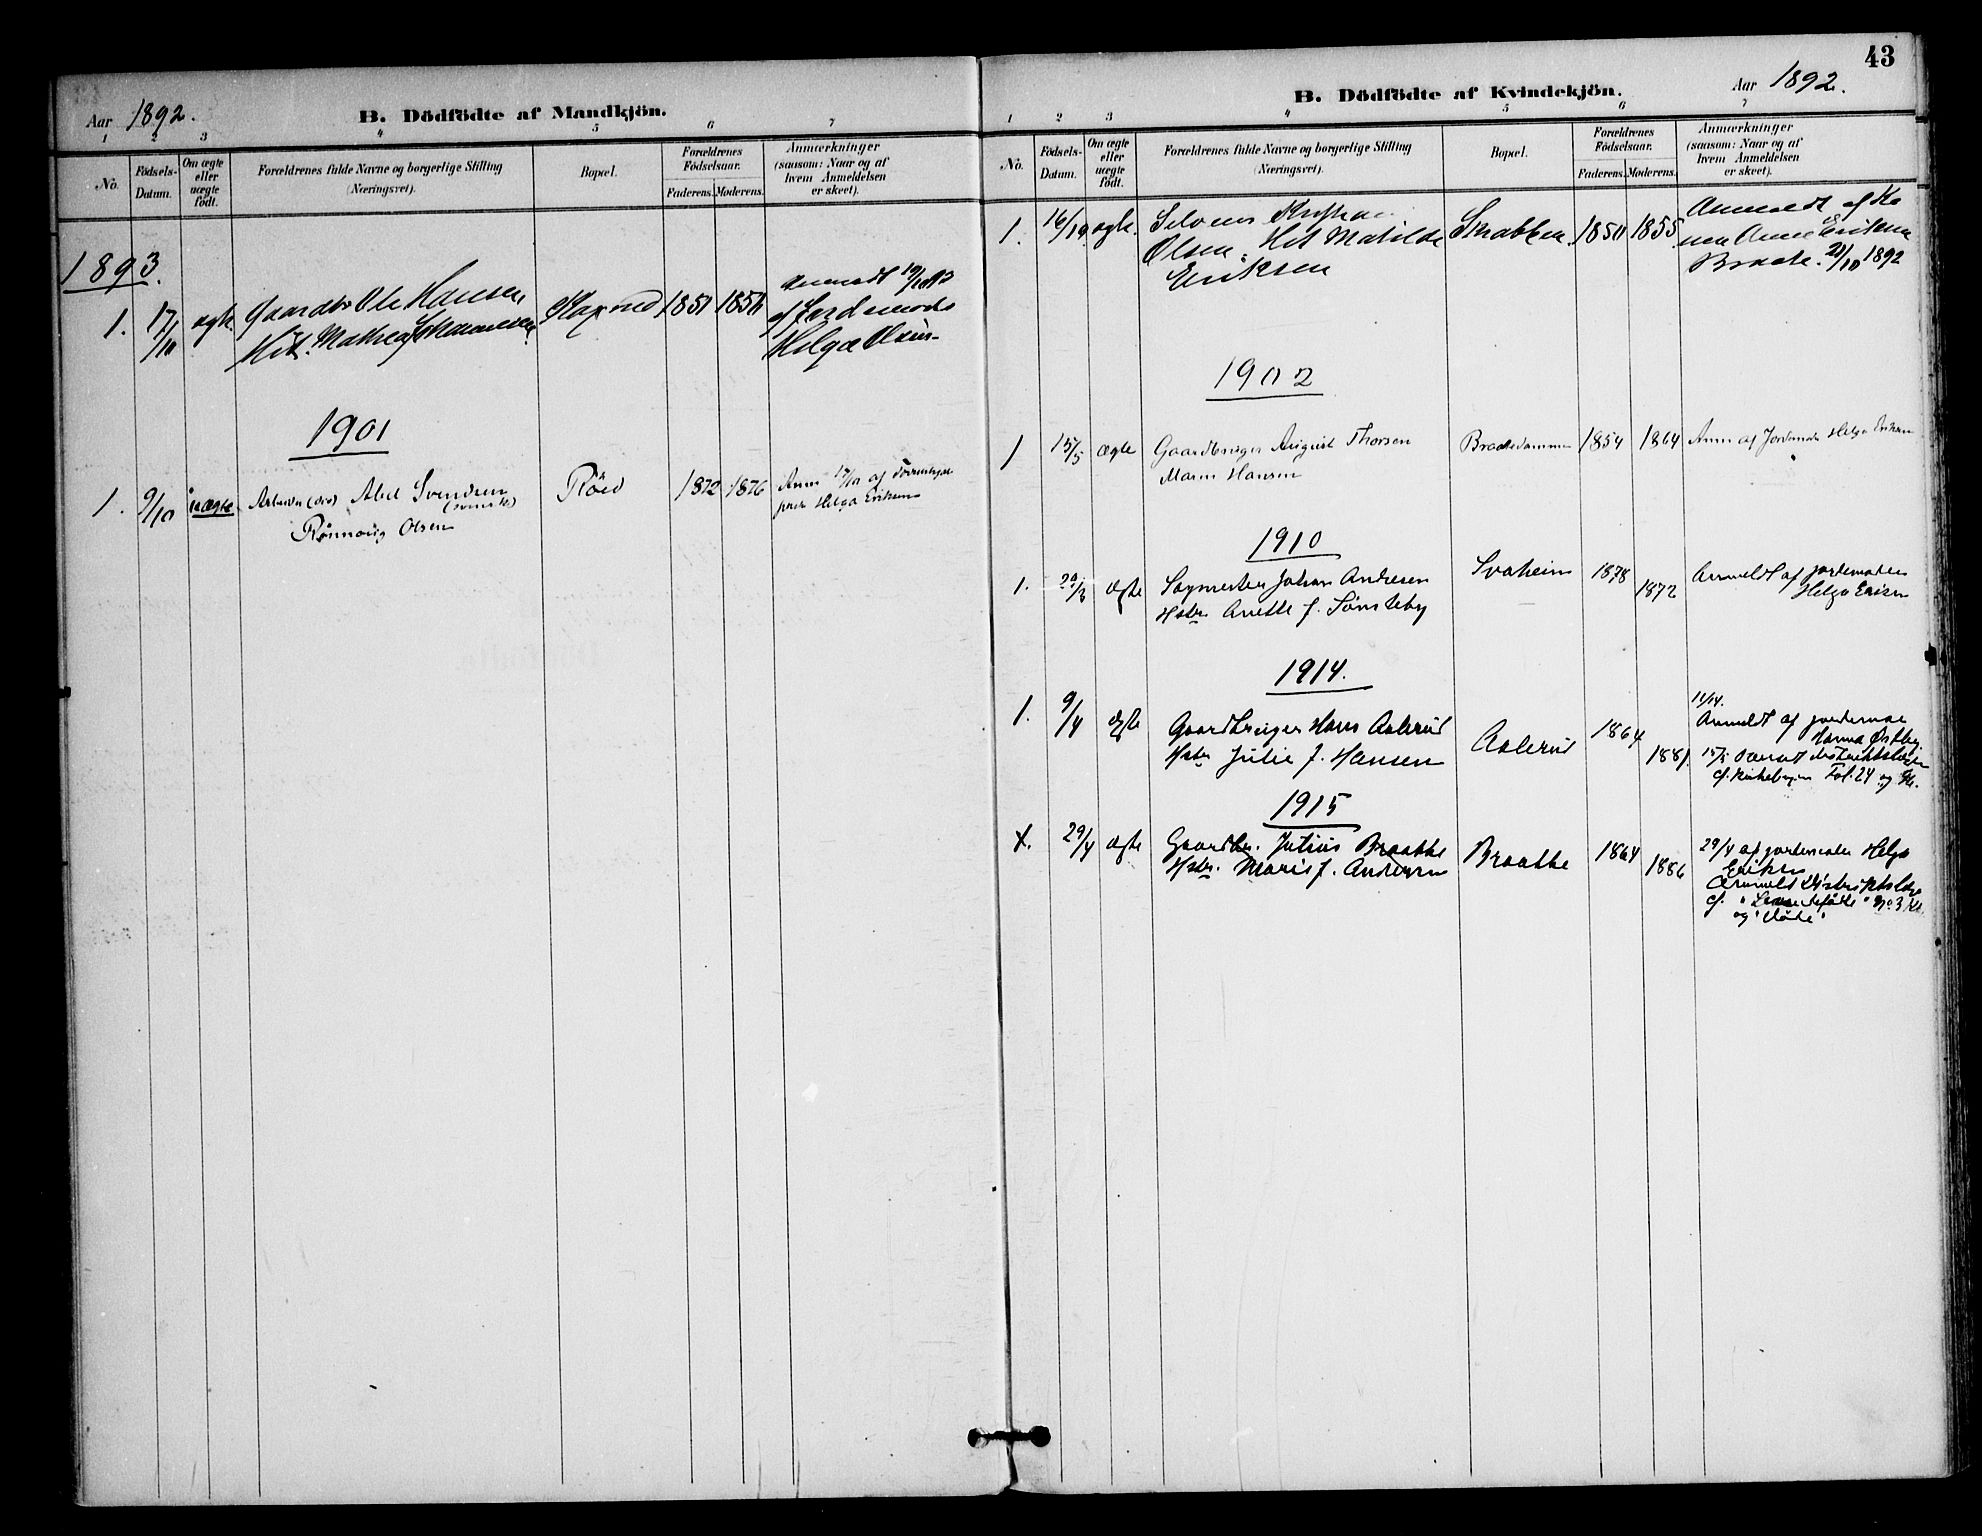 Aar 1892.
B. Dödfödte af Mandkjön.
1 2 3 4 5 6 7
No.
Födsels-
Datum.
Om ægte
eller
uægte
födt.
Forældrenes fulde Navne og borgerlige Stilling
(Næringsvei).
Bopæl.
Forældrenes
Födselsaar.
Faderens. Moderens.
Anmærkninger
(saasom: Naar og af
hvem Anmeldelsen
er skeet).
1893.
1. 17/10 ægte Gaardbr Ole Hansen 1851 1856 Anmeldt 19/10 93
Mathea Johannesen af Jordemoder
Helga Olsen
1901
1. 9/10 uægte Abel Svendsen Röed 1872 1876 Anm 17/10 af
(svensk) Helga Eriksen
Rönnaug Olsen
43
Aar 1892.
B. Dödfödte af Kvindekjön.
1 2 3 4 5 6 7
No.
Födsels-
Datum.
Om ægte
eller
uægte
födt.
Forældrenes fulde Navne og borgerlige Stilling
(Næringsvei).
Bopæl.
Forældrenes
Födselsaar.
Faderens. Moderens.
Anmærkninger
(saasom: Naar og af
hvem Anmeldelsen
er skeet).
1. 16/10 ægte. 1850 1855 Anmeldt af Ko
Olsen. Matilde nen Anne Eriksen
Eriksen Braate. 1892
1902
1 15/5 ægte Gaardbruger August Thorsen 1854 1864 Anm af Jordemoder Helga Eriksen
Maren Hansen
1910
1. ægte Sagmester Johan Andresen Svaheim 1878 Anmeldt af jordemoder
Hstr Anette f. Sønsteby 1872 Helga Eriksen
1914.
1. 9/4 ægte Gaardbruger Hans Aalerud Aalerud 1864 11/14.
Anmeldt af jordemor
Hstr Julie f. Hansen 1881. Hanna Østby.
15/5
cf. Kirkebogen Fol. 24 og
1915
29/4 ægte Gaardbr. Julius Braathe Braathe 1864 29/4 af jordemoder Helga
Hstr. Marie f. Andersen 1886 Eriksen
Anmeldt Distriktslæge
cf. "Levendefødte" No 3
og "døde"